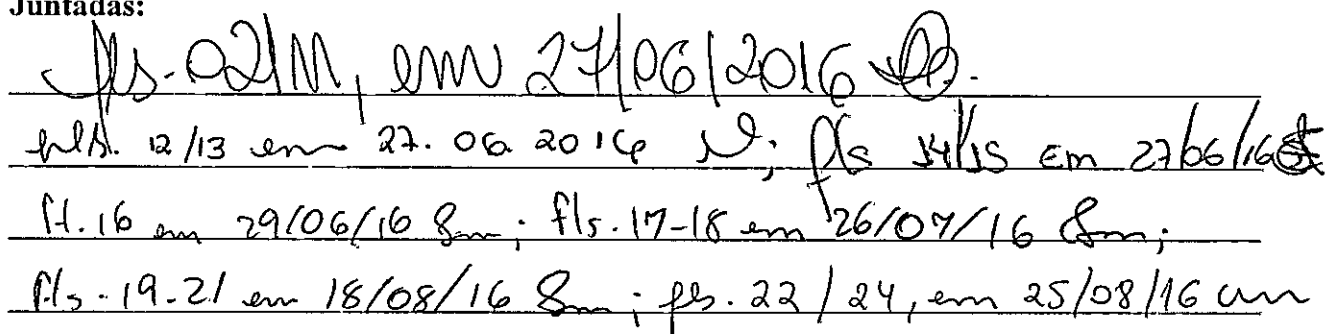 Juntadas:
fls. 02/11, em 27/06/2016
fls. 12/13 em 27.06.2016 ; fls 14/15 Em 27/06/16
fl. 16 em 29/06/16 ; fls. 17-18 em 26/07/16 ;
fls. 19-21 em 18/08/16 ; fls. 22/24, em 25/08/16